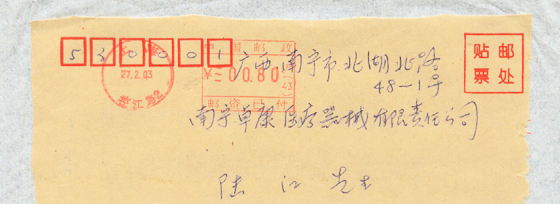 530001
中国邮政
27.2.03
¥=00.80
邮资已付
贴邮
票处
广西南宁市北湖北路
48-1号
南宁卓康医疗器械有限责任公司
陆江先生